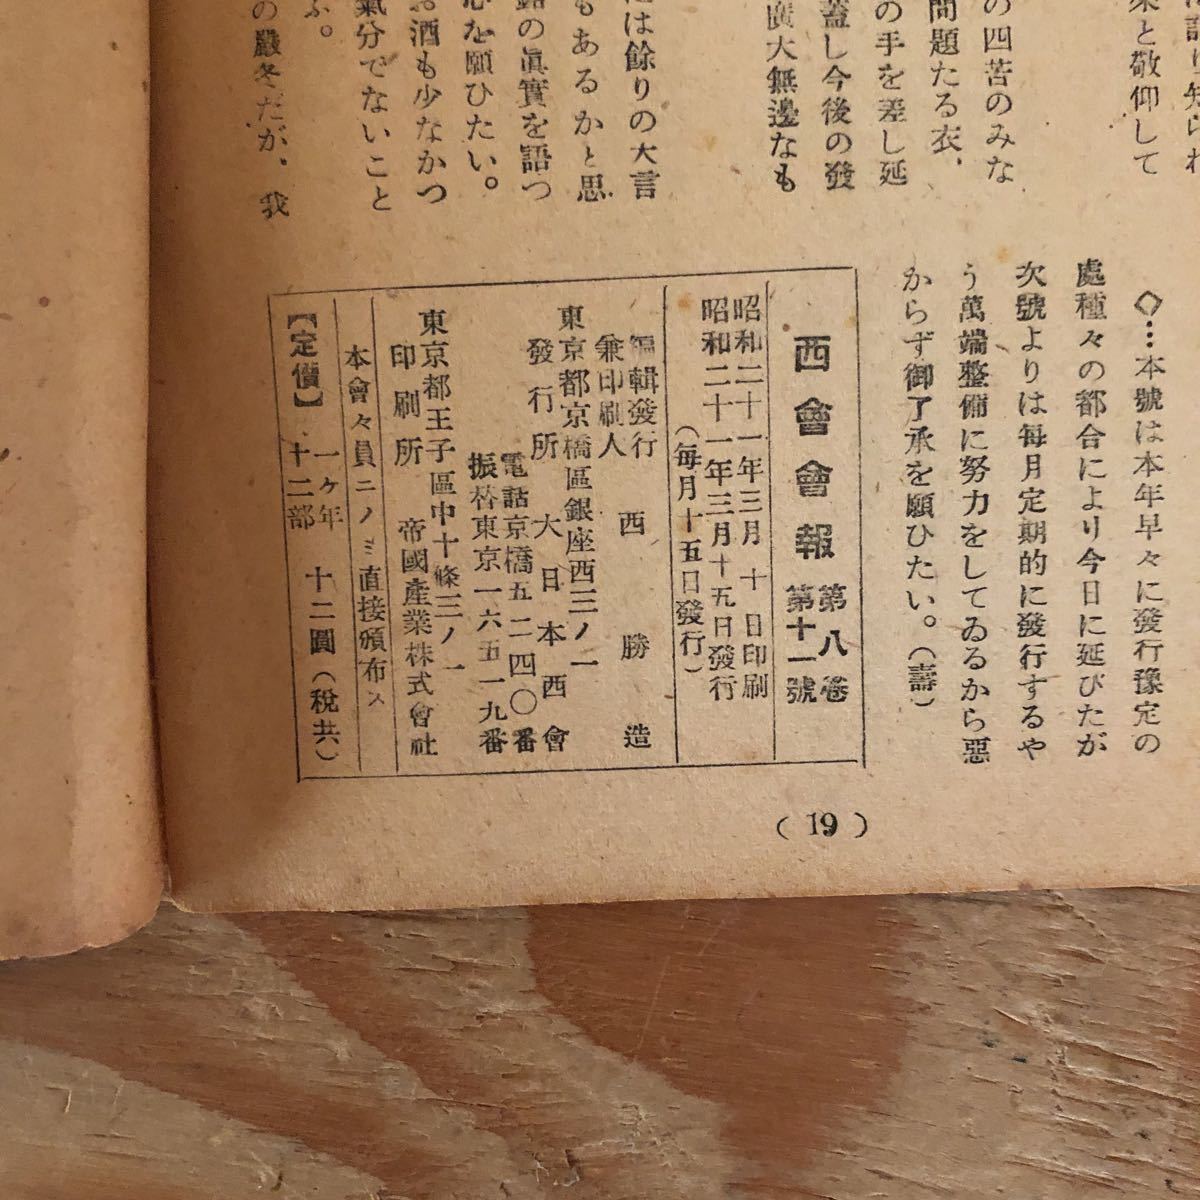 は語り知られ
衆と敬仰して
の四苦のみな
問題たる衣、
の手を差し延
蓋し今後の發
廣大無邊なも
には餘りの大言
もあるかと思
の眞實を語つ
心を願ひたい。
お酒も少なかつ
氣分でないこと
ふ。
の嚴冬だが、我
◇…本號は本年早々に發行豫定の
處種々の都合により今日に延びたが
次號よりは毎月定期的に發行するや
う萬端整備に努力をしてゐるから惡
からず御了承を願ひたい。(壽)
西會會報 第八卷 第十一號
昭和二十一年三月 十 日印刷
昭和二十一年三月十五日發行
(毎月十五日發行)
編輯發行
兼印刷人 西勝造
東京都京橋區銀座西三ノ一
發行所 大日本西會
電話京橋五二四〇番
振替東京一六五一九番
東京都王子區中十條三ノ一
印刷所 帝國產業株式會社
本會々員ニノミ直接頒布ス
【定價】 一ヶ年 十二部 十二圓(稅共)
(19)